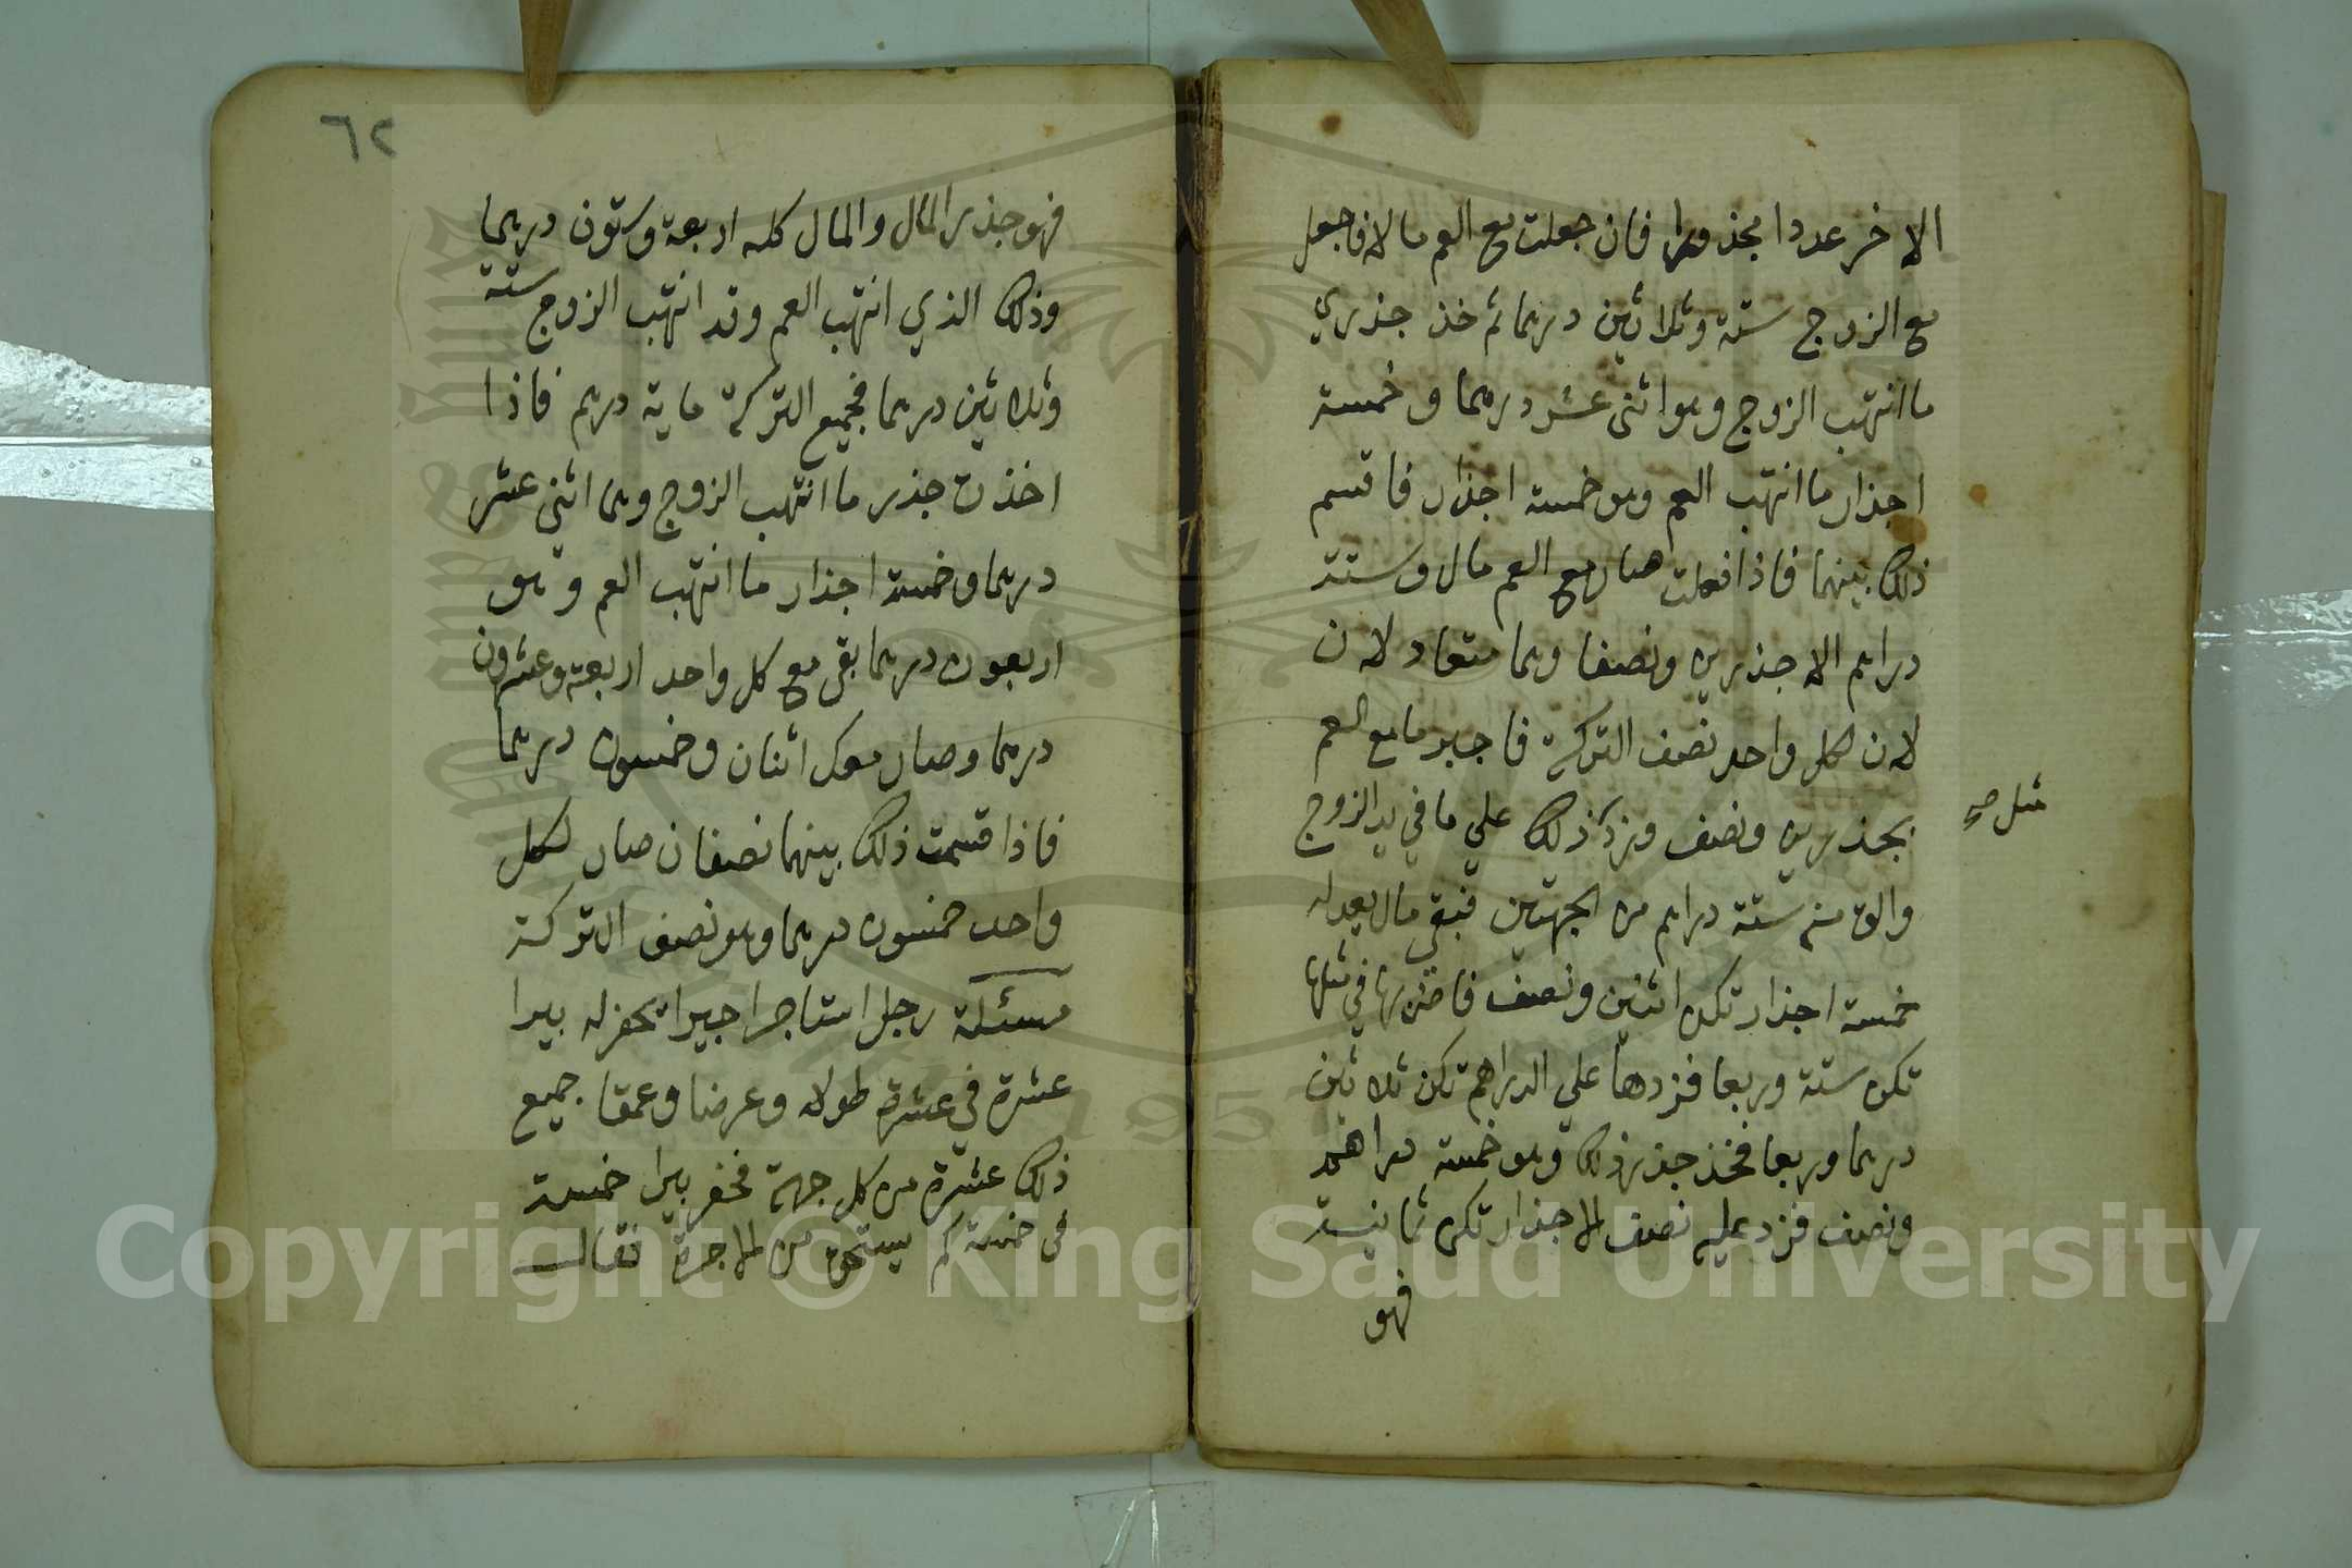 الاخر عددا مجذورا فان جعلت مع العم مالا فاجعل
مع الزوج ستة وثلاثين درهما ثم خذ جذري
ما انتهب الزوج وهو اثنى عشر درهما وخمسة
اجذار ما انتهب العم وهو خمسة اجذار فاقسم
ذلك بينهما فاذا فعلت صار مع العم مال وستة
دراهم الا جذرين ونصفا وهما متعاد لان
لان لكل واحد نصف التركة فاجبر ما مع العم
بجذرين ونصف وزد ذلك علي ما في يد الزوج
مثل صح
والق منه ستة دراهم من الجهتين فيبقي مال يعدله
خمسة اجذار تكن اثنين ونصف فاضربها في مثلها
تكن ستة وربعا فزدها علي الدراهم تكن ثلاثين
درهما وربعا فخذ جذر ذلك وهو خمسة دراهم
ونصف فزد عليه نصف الاجذار تكن ثمانية
فهو
٦٢
فهو جذر المال والمال كله اربعة وستون درهما
وذلك الذي انتهب العم وقد انتهب الزوج ستة
وثلاثين درهما فجميع التركة ماية درهم فاذا
اخذت جذر ما انتهب الزوج وهما اثني عشر
درهما وخمسة اجذار ما انتهب العم وهو
اربعون درهما بقي مع كل واحد اربعة وعشرون
درهما وصار معك اثنان وخمسون درهما
فاذا قسمت ذلك بينهما نصفان صار لكل
واحد خمسون درهما وهو نصف التركة
مسئلة رجل استاجر اجيرا يحفر له بيرا
عشرة في عشرة طولا وعرضا وعمقا جميع
ذلك عشرة من كل جهة فحفر بيرا خمسة
في خمسة كم يستحق من الاجرة فقال
Copyright © King Saud University